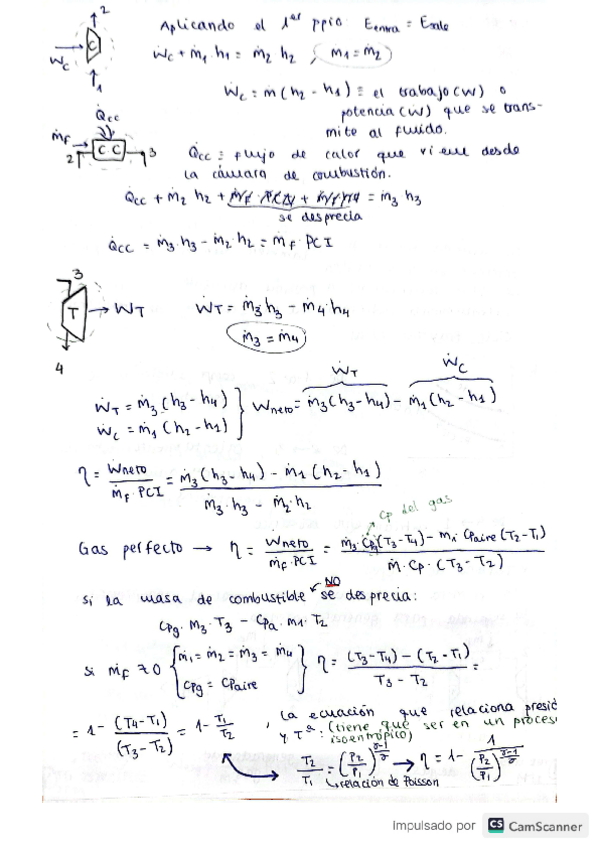 Aplicando el 1er ppio: Eentra = Esale
Ẇc + ṁ1 h1 = ṁ2 h2, ṁ1 = ṁ2
Ẇc = ṁ(h2 - h1) ≡ el trabajo(w) o
potencia (Ẇ) que se trans-
mite al fluido.
C
2
Wc
1
Q̇cc
ṁF
2
C C
3
Q̇cc ≡ flujo de calor que viene desde
la cámara de combustión.
Q̇cc + ṁ2 h2 + = ṁ3 h3
se desprecia
Q̇cc = ṁ3·h3 - ṁ2·h2 = ṁF·PCI
3
T
WT
4
ẆT = ṁ3h3 - ṁ4h4
ṁ3 = ṁ4
ẆT ẆC
ẆT = ṁ3(h3-h4)
Ẇc = ṁ1(h2-h1)
Wneto = ṁ3(h3-h4) - ṁ1(h2-h1)
η = Ẇneto / ṁF·PCI = ṁ3(h3-h4) - ṁ1(h2-h1) / ṁ3·h3 - ṁ2·h2
Cp del gas
Gas perfecto → η = Ẇneto / ṁF·PCI = ṁ3·Cpg(T3-T4) - ṁ1·Cpaire(T2-T1) / ṁ·Cp·(T3-T2)
NO
Si la masa de combustible se desprecia:
Cpg·M3·T3 - Cpa·m1·T2
Si ṁF ≃ 0 { ṁ1 = ṁ2 = ṁ3 = ṁ4
Cpg = Cpaire } η = (T3-T4) - (T2-T1) / T3 - T2 =
= 1 - (T4-T1) / (T3-T2) = 1 - T1/T2, La ecuación que relaciona presió
y Tª: (tiene que ser en un proces
isoentrópico)
T2/T1 = (P2/P1)^(γ-1)/γ → η = 1 - 1 / (P2/P1)^(γ-1)/γ
relación de Poisson
Impulsado por CS CamScanner